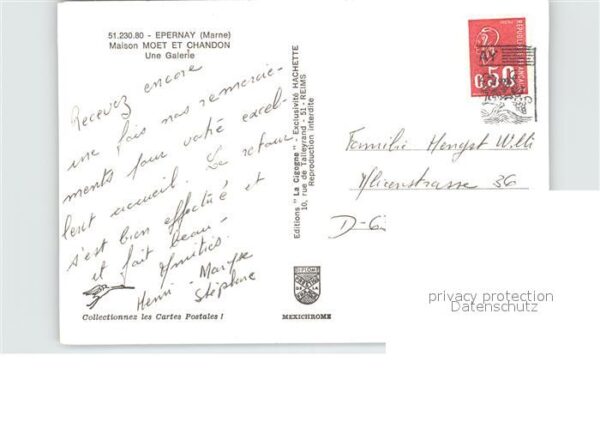 51.230.80 - EPERNAY (Marne)
Maison MOET ET CHANDON
Une Galerie
Recevez encore
une fois nos remercie-
ments pour votre excel-
lent accueil. Le retour
s'est bien effectué et
il fait beau -
Amitiés.
Henri - Maryse
Stéphane
Collectionnez les Cartes Postales !
Editions "La Cigogne" - Exclusivité HACHETTE
10, rue de Talleyrand - 51 - REIMS
Reproduction interdite
MEXICHROME
0,50
Familie Hengst Willi
36
D-
privacy protection
Datenschutz